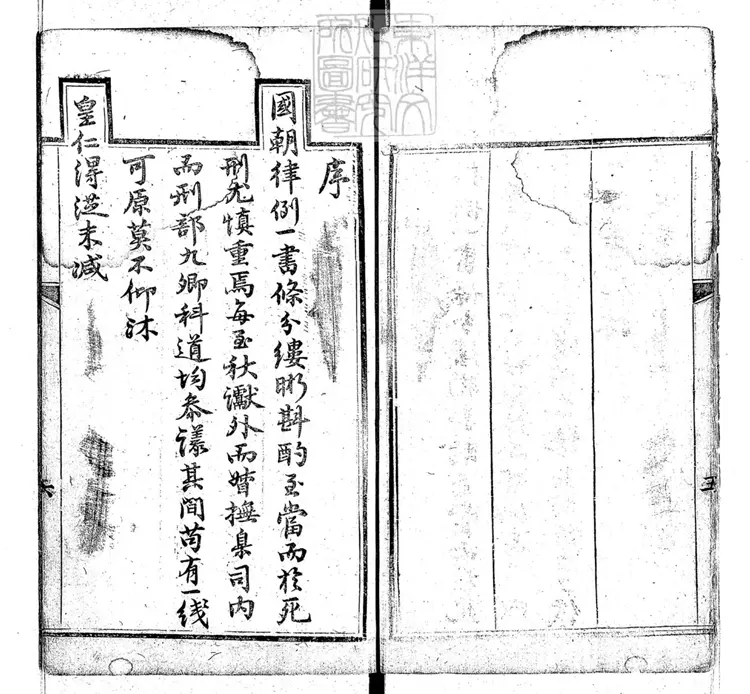 序
國朝律例一書條分縷晰斟酌至當而於死
刑尤慎重焉每至秋讞外而督撫臬司內
而刑部九卿科道均叅議其間苟有一线
可原莫不仰沐
皇仁得從末減
東洋文
化研究
所圖書
五
六